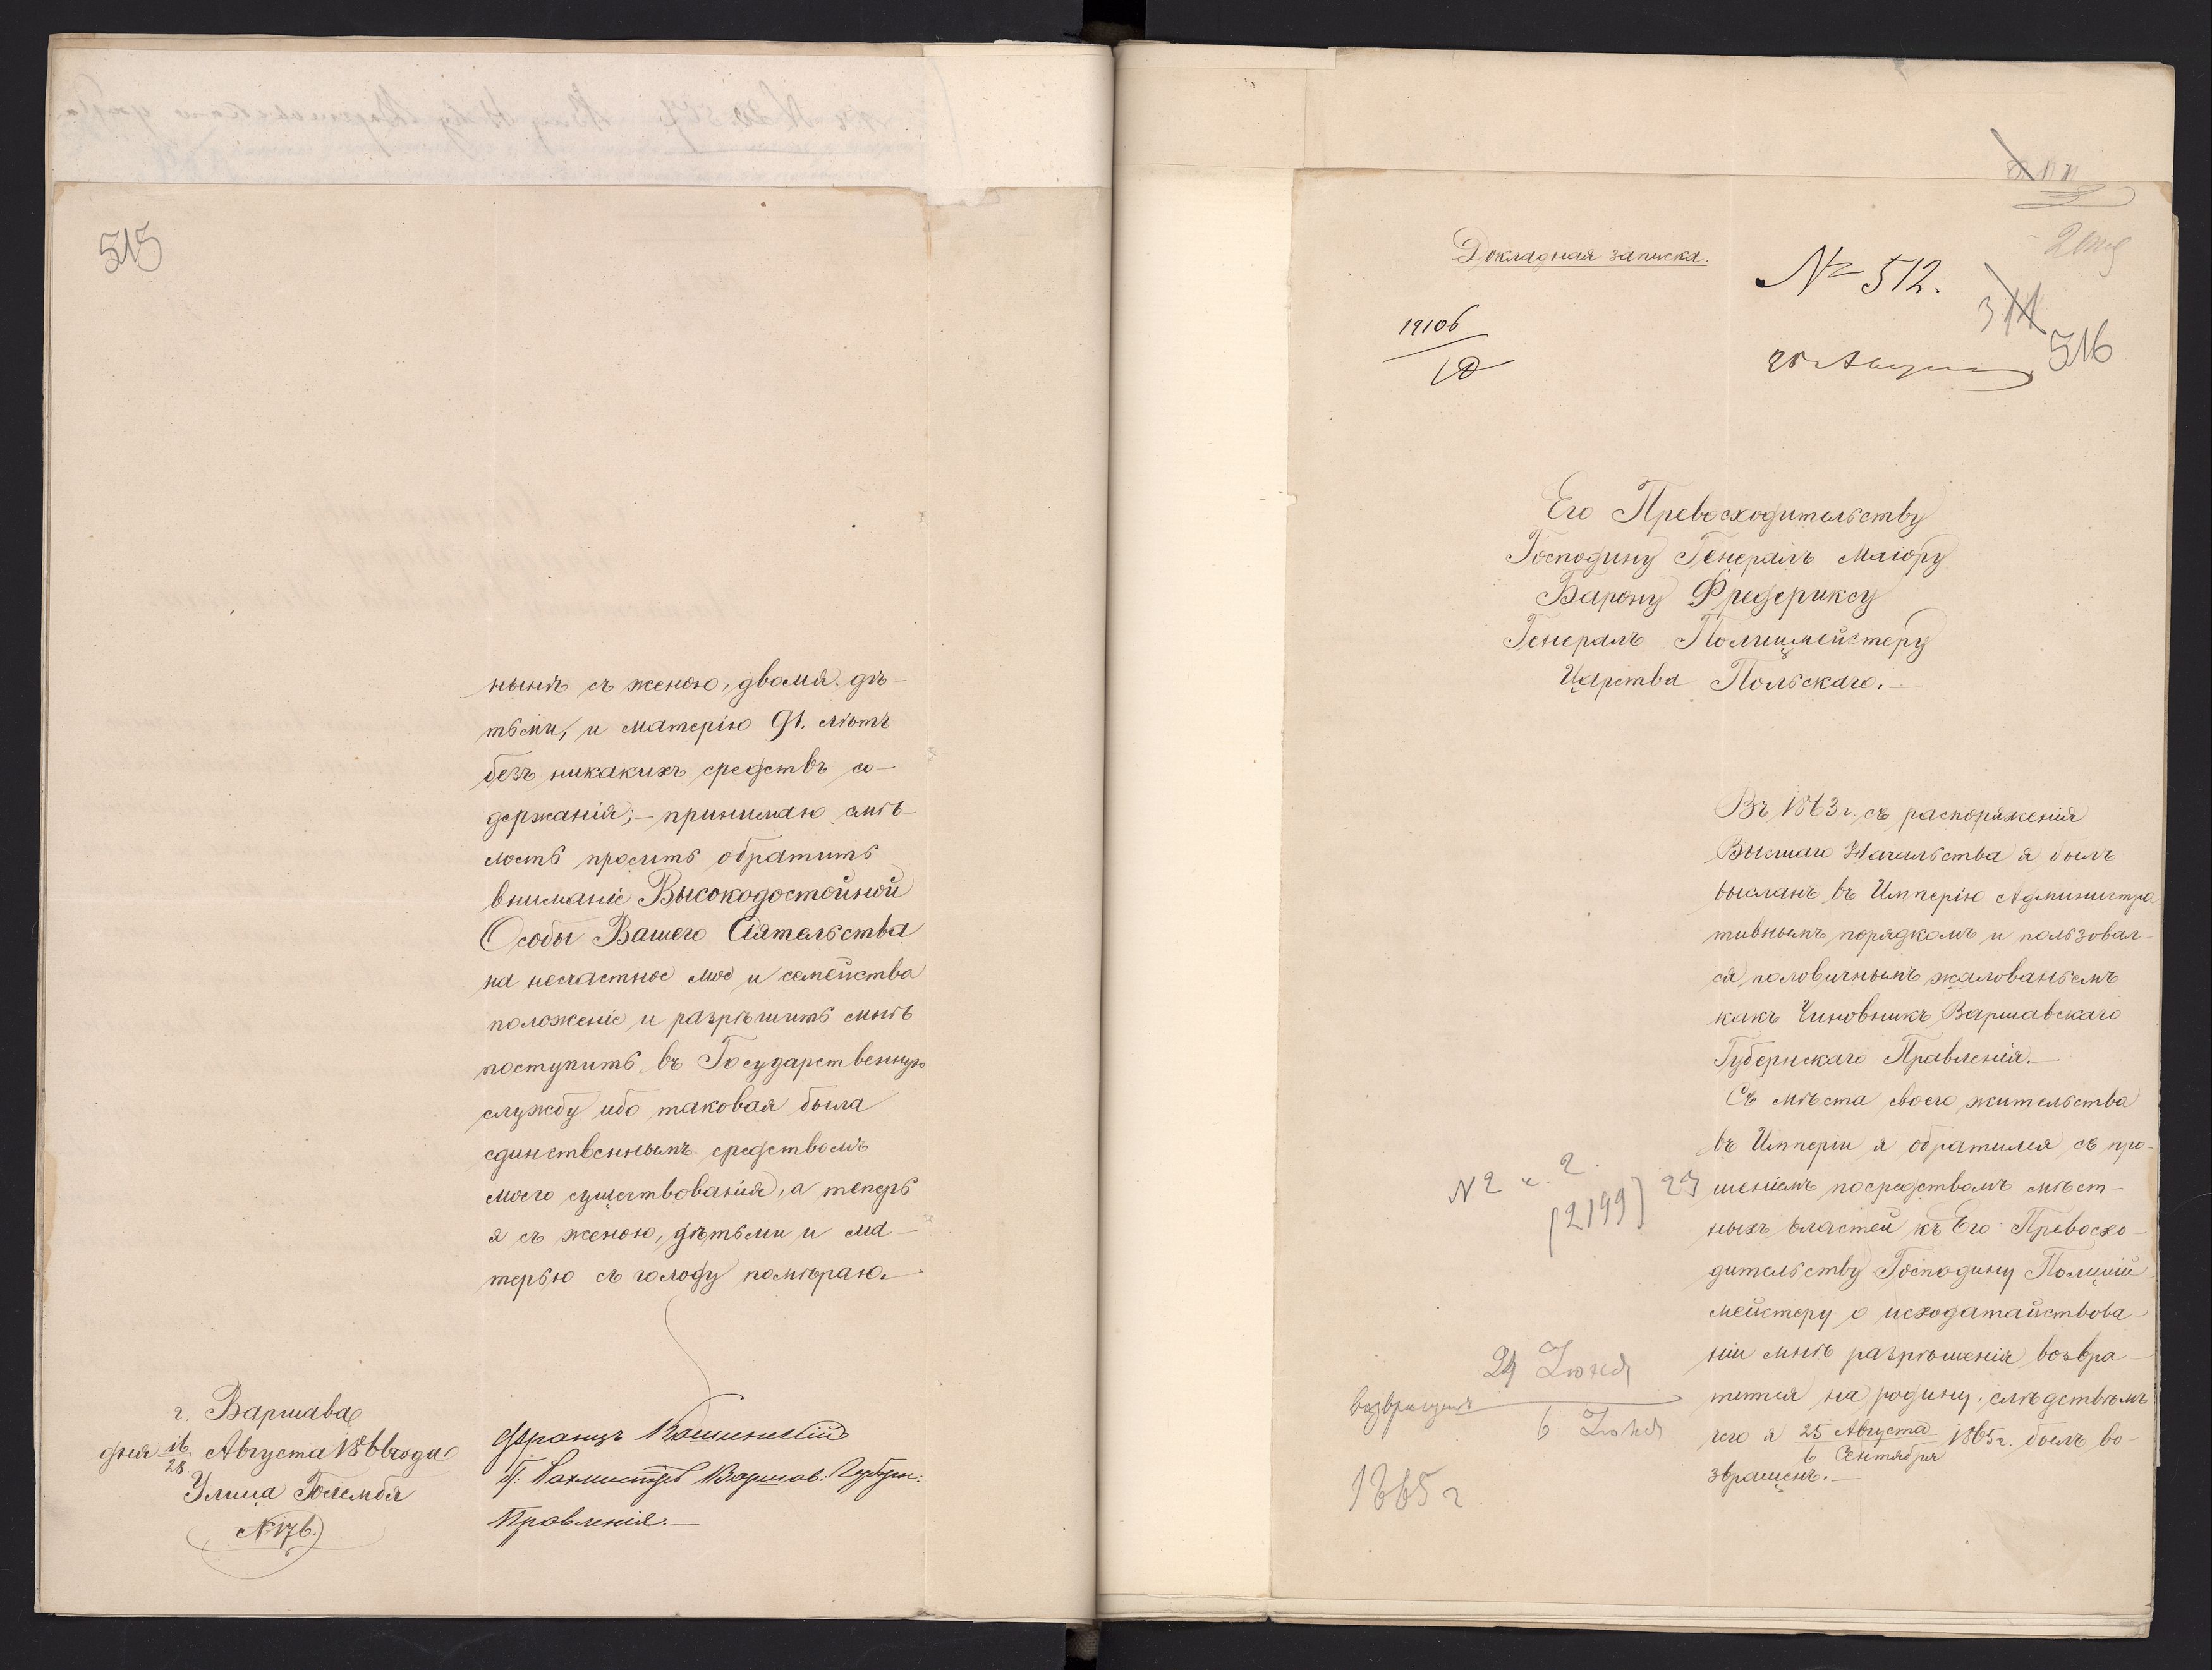 515
нынѣ съ женою, двомя дѣ-
тьми, и матерію 91. лѣтъ
безъ никакихъ средствъ со-
держанія; – принимаю смѣ-
лость просить обратить
вниманіе Высокодостойной
Особы Вашего Сіятельства
на несчастное мое и семейства
положеніе и разрѣшить мнѣ
поступить въ Государственную
службу ибо таковая была
единственнымъ средствомъ
моего существованія, а теперь
я съ женою, дѣтьми и ма-
терью съ голоду помѣраю.
г. Варшава
дня 16/28 Августа 1866 года
Улица Голембя
№ 176.
Францъ
Варшав: Губерн:
Правленія.
Докладная записка.
№ 512.
19106
10
311
516
Его Превосходительству
Господину Генералъ Маіору
Барону Фредериксу
Генералъ Полицмейстеру
Царства Польскаго.
Въ 1863 г. съ распоряженія
Высшаго Начальства я былъ
высланъ въ Имперію Администра
тивнымъ порядкомъ и пользовал-
ся половичнымъ жалованьемъ
какъ Чиновникъ Варшавскаго
Губернскаго Правленія.
Съ мѣста своего жительства
въ Имперіи я обратился съ про-
шеніемъ посредствомъ мѣст-
ныхъ властей къ Его Превосхо-
дительству Господину Полиціи
мейстеру о исходатайствова-
ніи мнѣ разрѣшенія возвра-
тится на родину, слѣдствіемъ
чего я 25 Августа/6 Сентября 1865 г. былъ во-
звращенъ.
N 2 ч. 2.
(2199) 27
24 Іюня
возвращенъ
6 Іюня
1865 г.